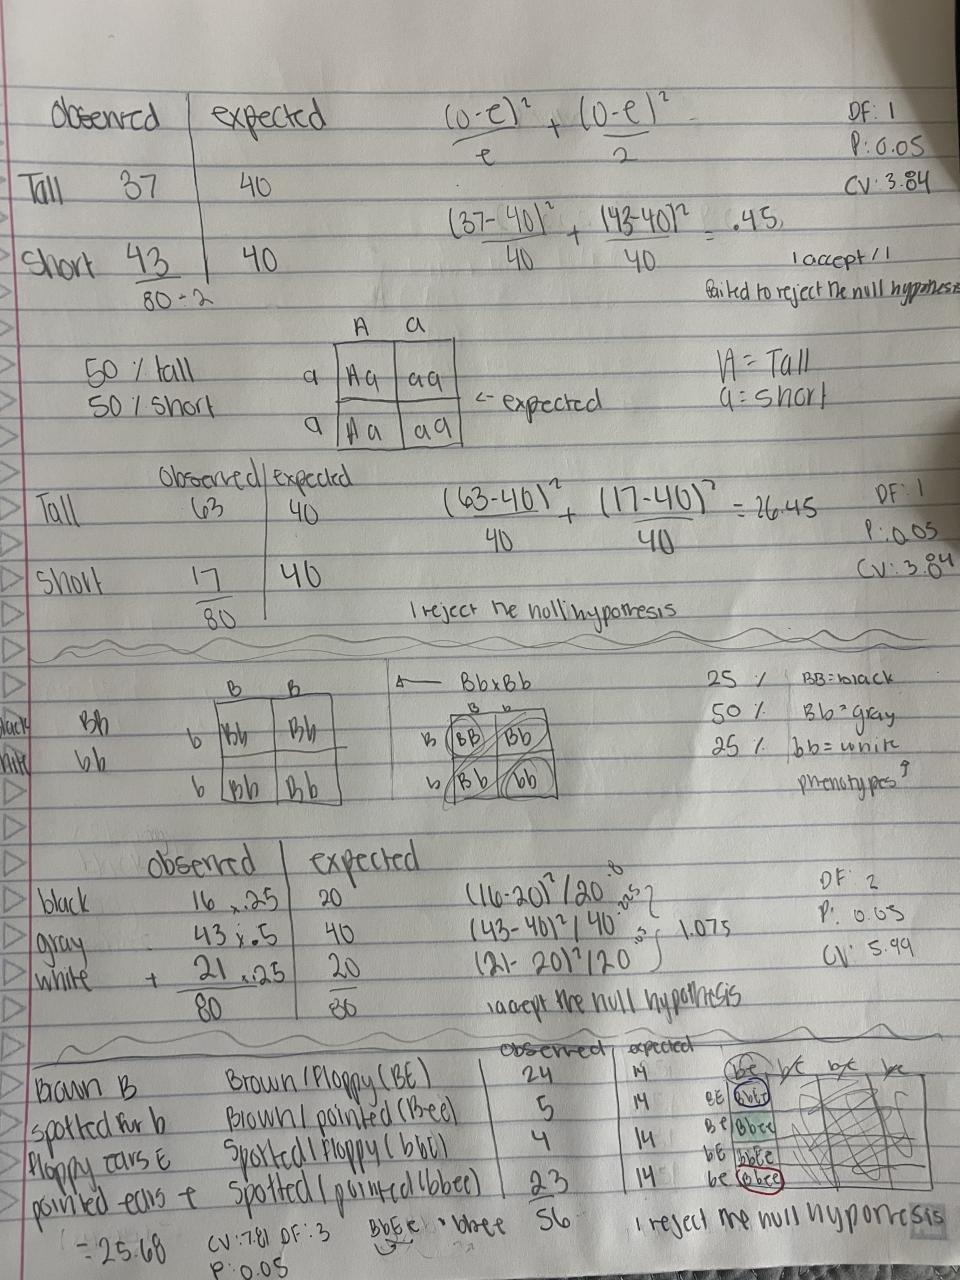 observed expected (o-e)² / e + (o-e)² / 2 DF: 1
P: 0.05
Tall 37 40 CV: 3.84
(37-40)² / 40 + (43-40)² / 40 = .45
Short 43 40 I accept / I
80 ÷ 2 failed to reject the null hypothesis
A a
50 % tall a Aa aa A = Tall
50 % short a Aa aa <- expected a = short
observed expected
Tall 63 40 (63-40)² / 40 + (17-40)² / 40 = 26.45 DF: 1
P: 0.05
Short 17 40 CV: 3.84
80 I reject the null hypothesis
B B <- Bb x Bb 25 % BB = black
black Bb b Bb Bb B b 50 % Bb = gray
white bb B BB Bb 25 % bb = white
b Bb Bb b Bb bb phenotypes
observed expected
black 16 x.25 20 (16-20)² / 20 .8 DF: 2
gray 43 x.5 40 (43-40)² / 40 1.075 P: 0.05
white + 21 x.25 20 (21-20)² / 20 CV: 5.99
80 80 I accept the null hypothesis
observed expected
Brown B Brown / Floppy (BE) 24 14 be be be be
spotted fur b Brown / pointed (Bee) 5 14 BE
Floppy ears E Spotted / Floppy (bbE) 4 14 Be Bbee
pointed ears e Spotted / pointed (bbee) 23 14 bE bbEe
56 be bbee
= 25.68 CV: 7.81 DF: 3 BbEe x bbee I reject the null hypothesis
P: 0.05